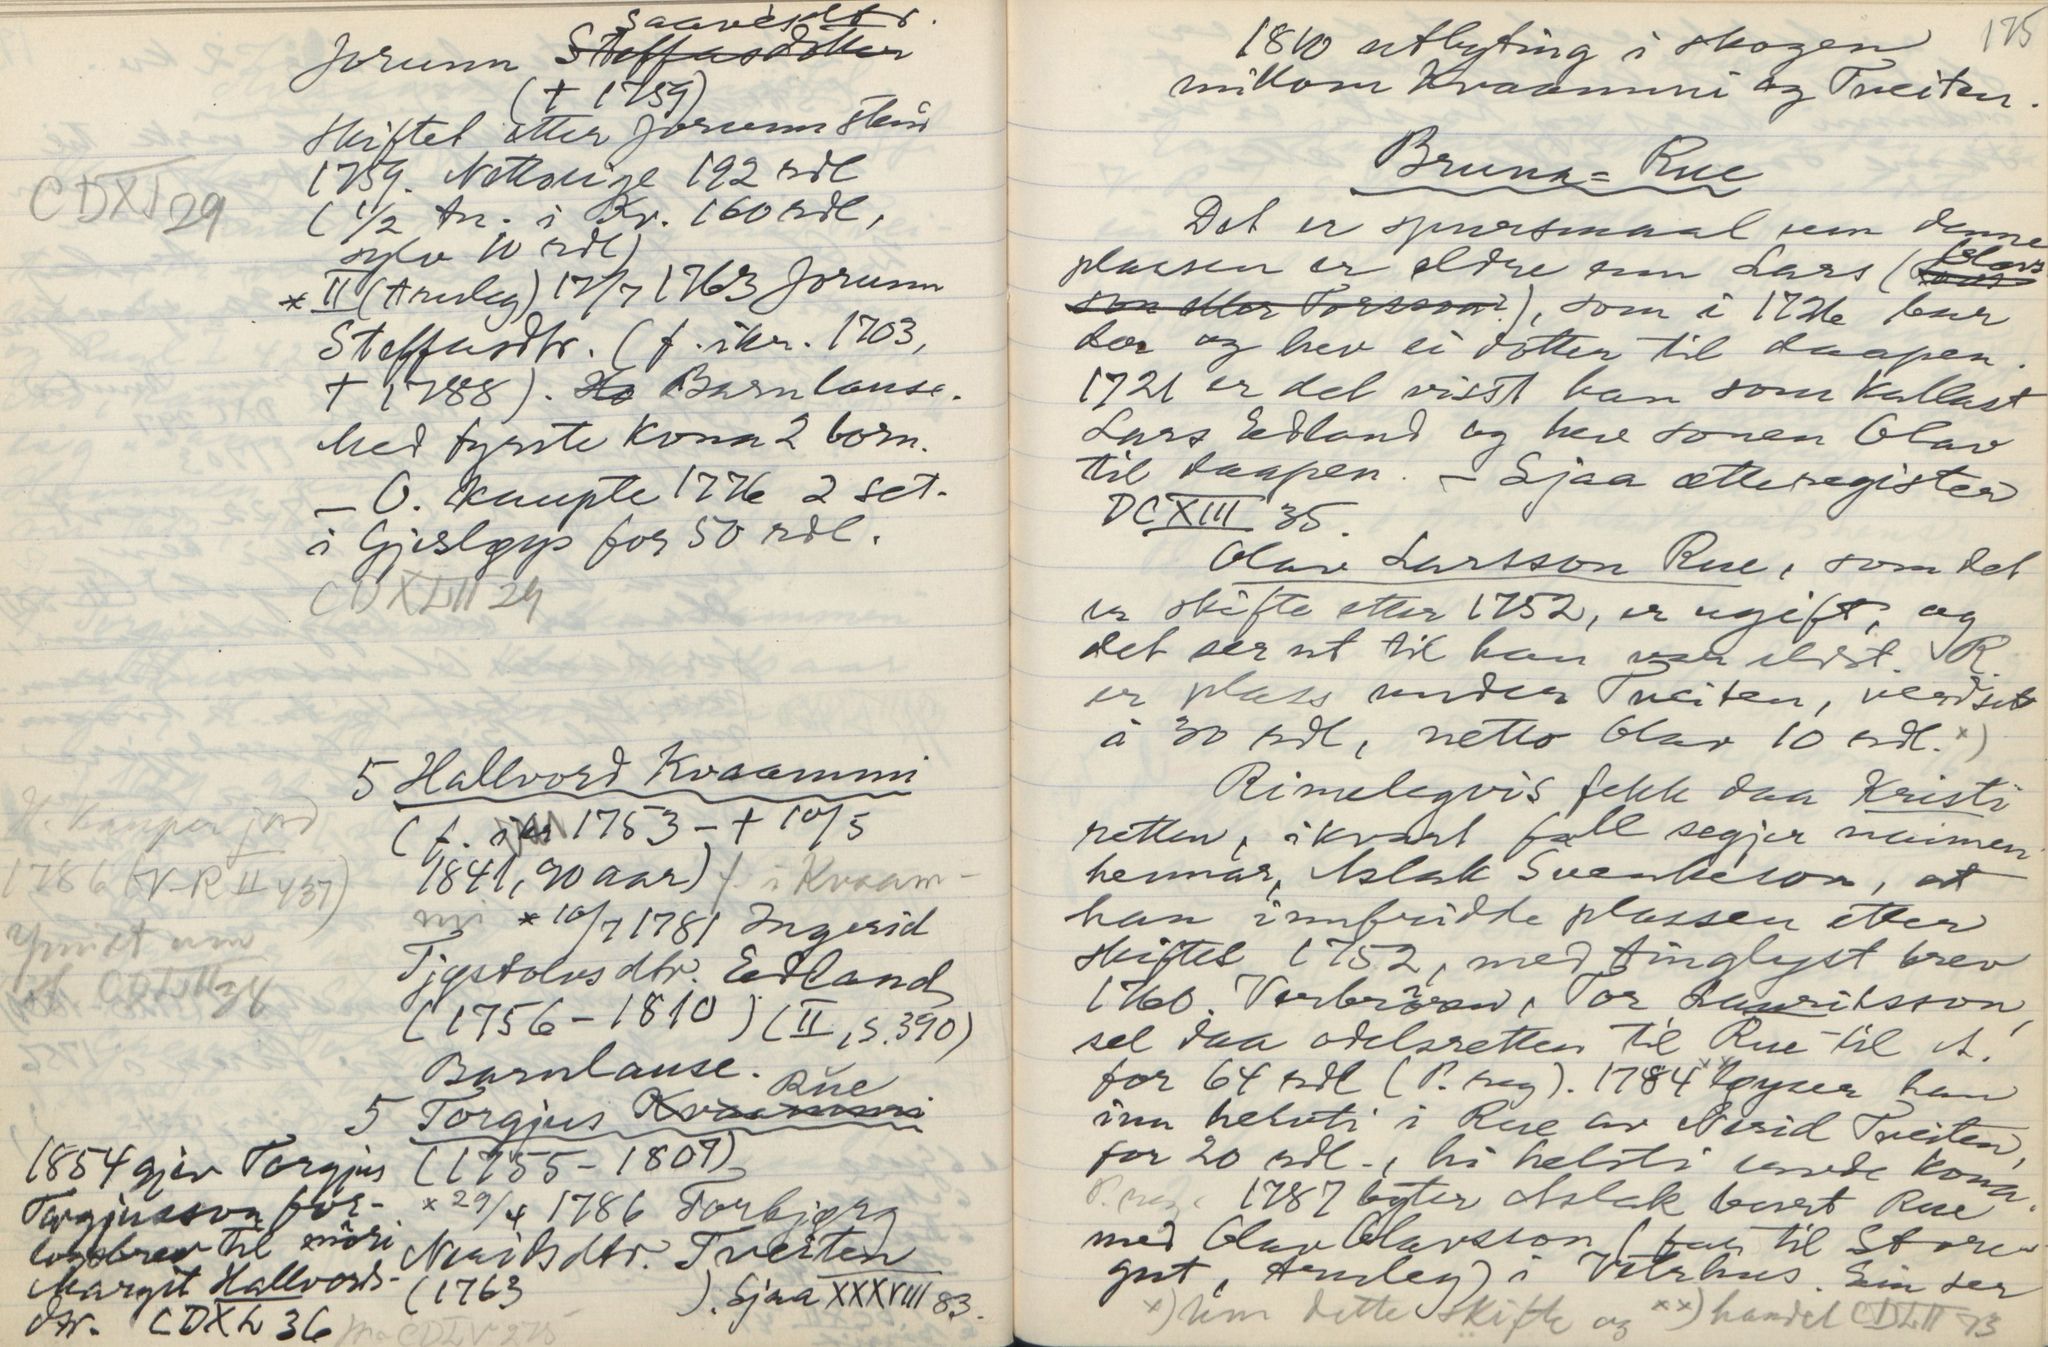 Saavesdtr.
Jorunn Steffasdotter
(† 1759)
Skiftet etter Jorunn stend
1759. Nettoeige 192 rdl
(1/2 An. i Kv. 160 rdl,
sylv 10 rdl)
CDXI 29
* II (Arnleg) 17/7 1763 Jorunn
Steffasdtr. (f. ikr. 1703,
† 1788). Ho Barnlause.
Med fyrste kona 2 born.
— O. kaupte 1776 2 set.
i Gjesløys for 50 rdl.
CDXLII 29
5 Hallvord Kvaammi
(f. ikr 1753 - † 10/5
1841, 90 aar) f. i Kvaam-
mi * 10/7 1781 Ingerid
Tjøstolvsdtr. Edland
(1756-1810) (II, s. 390)
Barnlause.
H. kauper jord
1786 (V-R II 437)
Ymist um
CDLII 34
Rue
5 Torgjus Kvaammi
(1755-1809)
* 29/4 1786 Torbjørg
Neridsdtr. Tveiten
(1763 ). Sjaa XXXVIII 83.
CDLV 275
1854 gjev Torgjus
Torgjusson for-
lovsbrev til møri
Margit Hallvords-
dtr. CDXL 36
175
1810 utbyting i skogen
millom Kvaammi og Tveiten.
Brunn=Rue
Det er spursmaal um denne
plassen er eldre enn Lars (Olavs
son eller Torsson?), som i 1726 bur
der og hev ei dotter til daapen.
1721 er det visst han som kallast
Lars Edland og hev sonen Olav
til daapen. — Sjaa ætteregister
DCXIII 35.
Olav Larsson Rue, som det
er skifte etter 1752, er ugift, og
det ser ut til han var eldst. R.
er plass under Tveiten, verdsett
à 30 rdl, netto Olav 10 rdl. x)
Rimelegvis fekk daa Kristi
retten, ikvart fall segjer
hennar, Aslak Svenkeson, at
han innfridde plassen etter
skiftet 1752, med tinglyst brev
1760. Verbroren, Tor Lauritsson,
sel daa odelsretten til Rue til A.
for 64 rdl (P. reg). 1784 xx) løyser han
inn helvti i Rue av Nerid Tveiten,
for 20 rdl., hi helvti aatte kona.
P. reg. 1787 byter Aslak burt Rue
med Olav Olavsson (far til Store-
gut, Arnleg) i Vetrhus. Ein ser
x) Um dette skifte og xx) handel CDLII 73